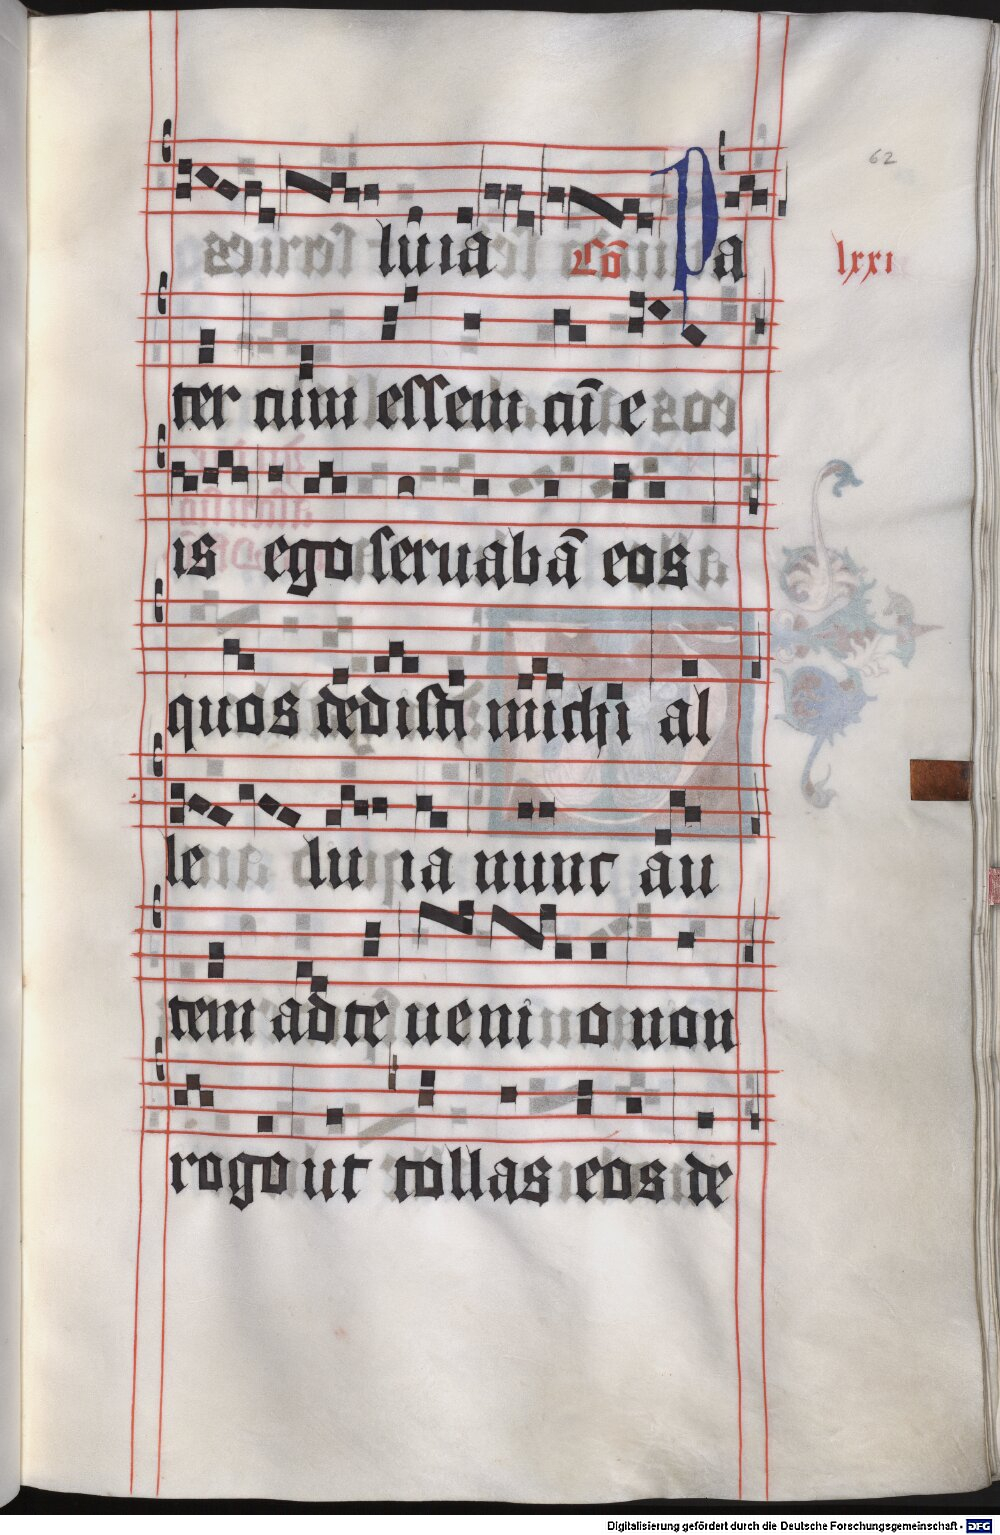 62
luia Cō Pa
lxxi
ter cum essem cū e
is ego seruabā eos
quos dedisti michi al
le luia nunc au
tem ad te ueni o non
rogo ut tollas eos de
Digitalisierung gefördert durch die Deutsche Forschungsgemeinschaft - DFG